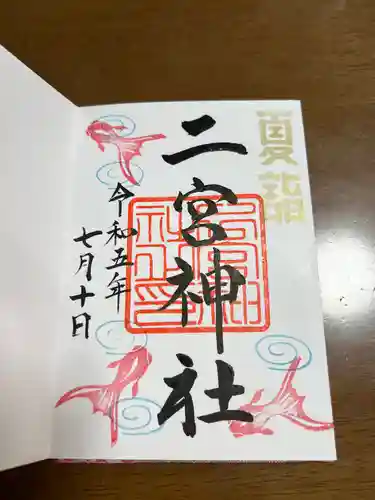 夏詣
二宮神社
令和五年
七月十日